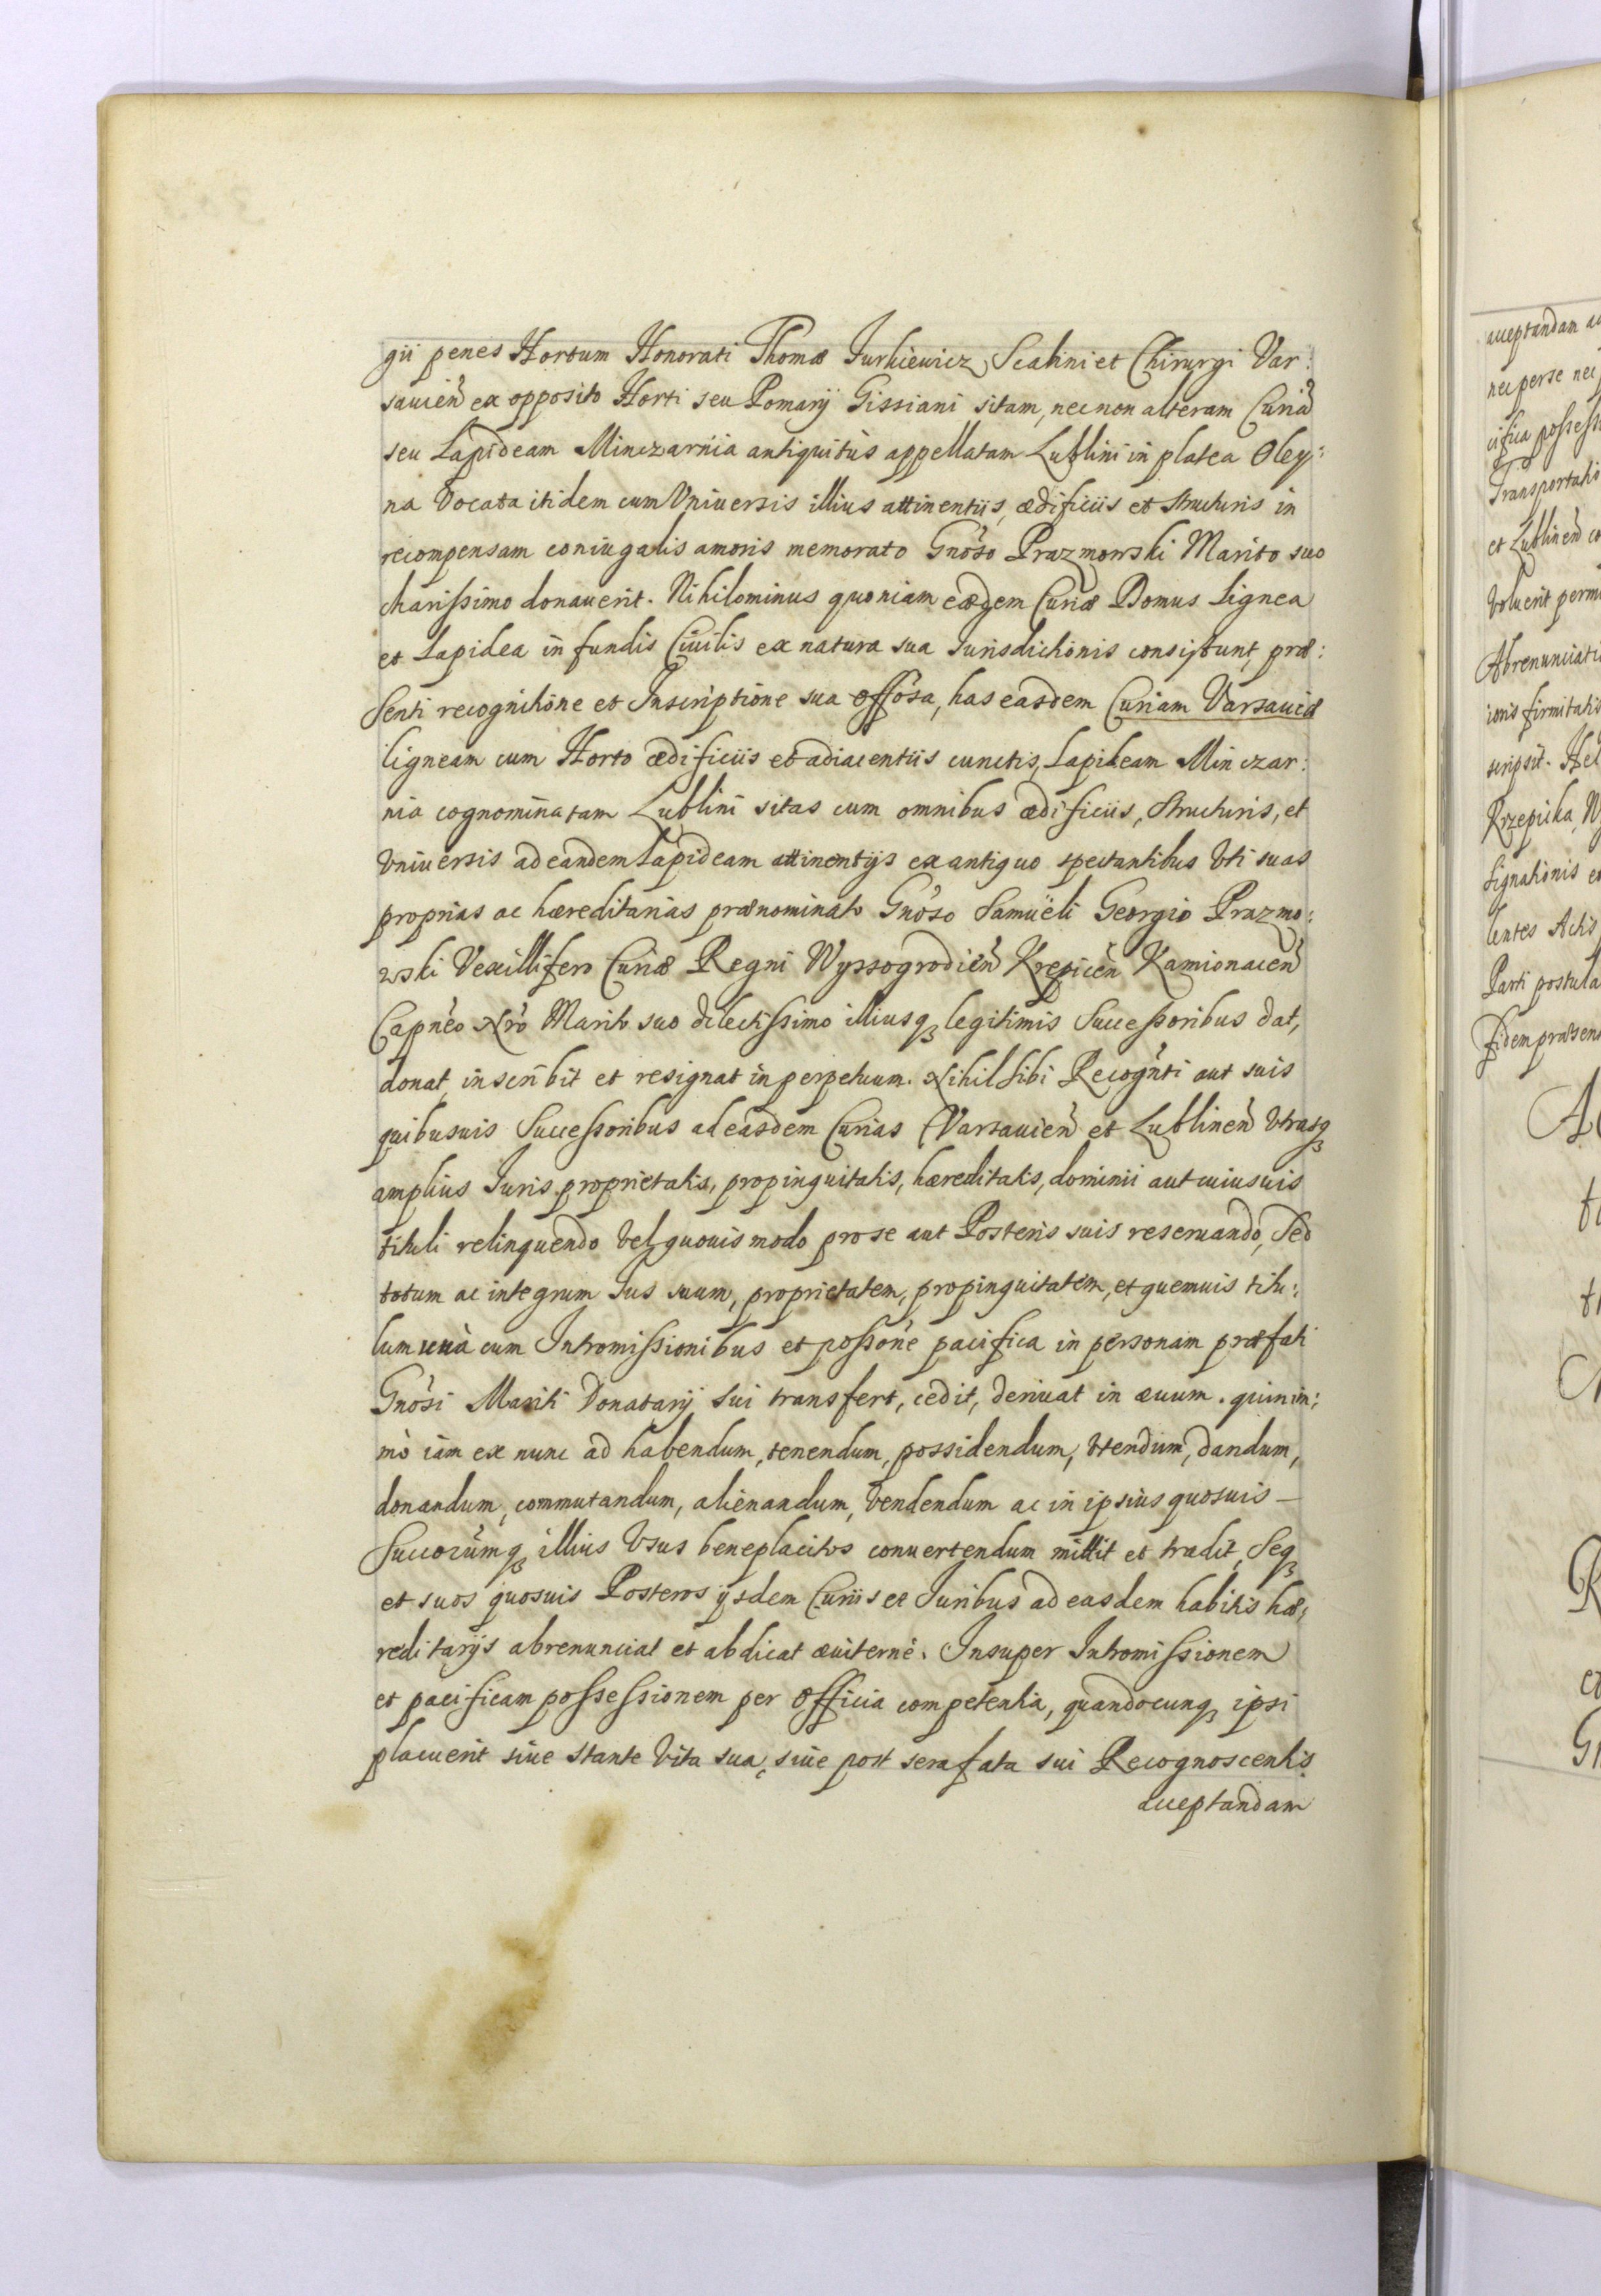 gii penes Hortum Honorati Thomæ Jurkiewicz Scabini et Chirurgi Var:
sauien̄ ex opposito Horti seu Pomarij Gissiani sitam, necnon alteram Curiā
seu Lapideam Minczarnia antiquitùs appellatam Lublini in platea Oley:
na Vocata itidem cum Vniuersis illius attinentiis, ædificiis et structuris in
recompensam coniugalis amoris memorato Gnōso Prazmowski Marito suo
charissimo donauerit. Nihilominus quoniam eædem Curiæ Domus Lignea
et Lapidea in fundis Ciuilis ex natura sua Jurisdictionis consistunt, præ:
senti recognitione et Inscriptione sua offōsa, has easdem Curiam Varsauiæ
ligneam cum Horto ædificiis et adiacentiis cunctis, Lapideam Minczar:
nia cognominatam Lublini sitas cum omnibus ædificiis, structuris, et
Vniuersis ad eandem Lapideam attinentijs ex antiquo spectantibus Vti suas
proprias ac hæreditarias prænominato Gnōso Samuëli Georgio Prazmo:
wski Vexillifero Curiæ Regni Wyssogrodien̄ Krepicen̄ Kamionacen̄
Capnēo Nrō Marito suo dilectissimo illiusq3 legitimis Successoribus dat,
donat, inscribit et resignat in perpetuum. Nihil sibi Recogn̄ti aut suis
quibusuis Successoribus ad easdem Curias Varsauien̄ et Lublinen̄ Vtrasq3
amplius Juris proprietatis, propinquitatis, hæreditatis, dominii aut cuiusuis
tituli relinquendo vel quouis modo pro se aut Posteris suis reseruando, Sed
totum ac integrum Jus suum, proprietatem, propinquitatem, et quemuis titu:
lum unà cum Intromissionibus et possōne pacifica in personam præfati
Gnōsi Mariti Donatarij sui transfert, cedit, deriuat in æuum. quin im:
mò iam ex nunc ad habendum, tenendum, possidendum, Vtendum, dandum,
donandum, commutandum, alienandum, Vendendum ac in ipsius quosuis –
Succorūmq3 illius Vsus beneplacitos conuertendum mittit et tradit, Seq3
et suos quosuis Posteros ijsdem Curiis et Juribus ad easdem habitis hæ:
reditarijs abrenunciat et abdicat æuiternè. Insuper Intromissionem
et pacificam possessionem per Officia competentia, quandocunq3 ipsi
placuerit siue stante Vita sua, siue post sera fata sui Recognoscentis
acceptandam
acceptandam
nec per se nec
cifica possess
Transportatio
et Lublinen̄
Voluerit perm
Abrenunciati
ionis firmitatis
scripsit.
Krzepicka
signationis
lentes Actis
Parti postula
fidem præsen